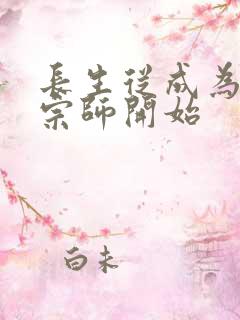 長生從成為
宗師開始
白未